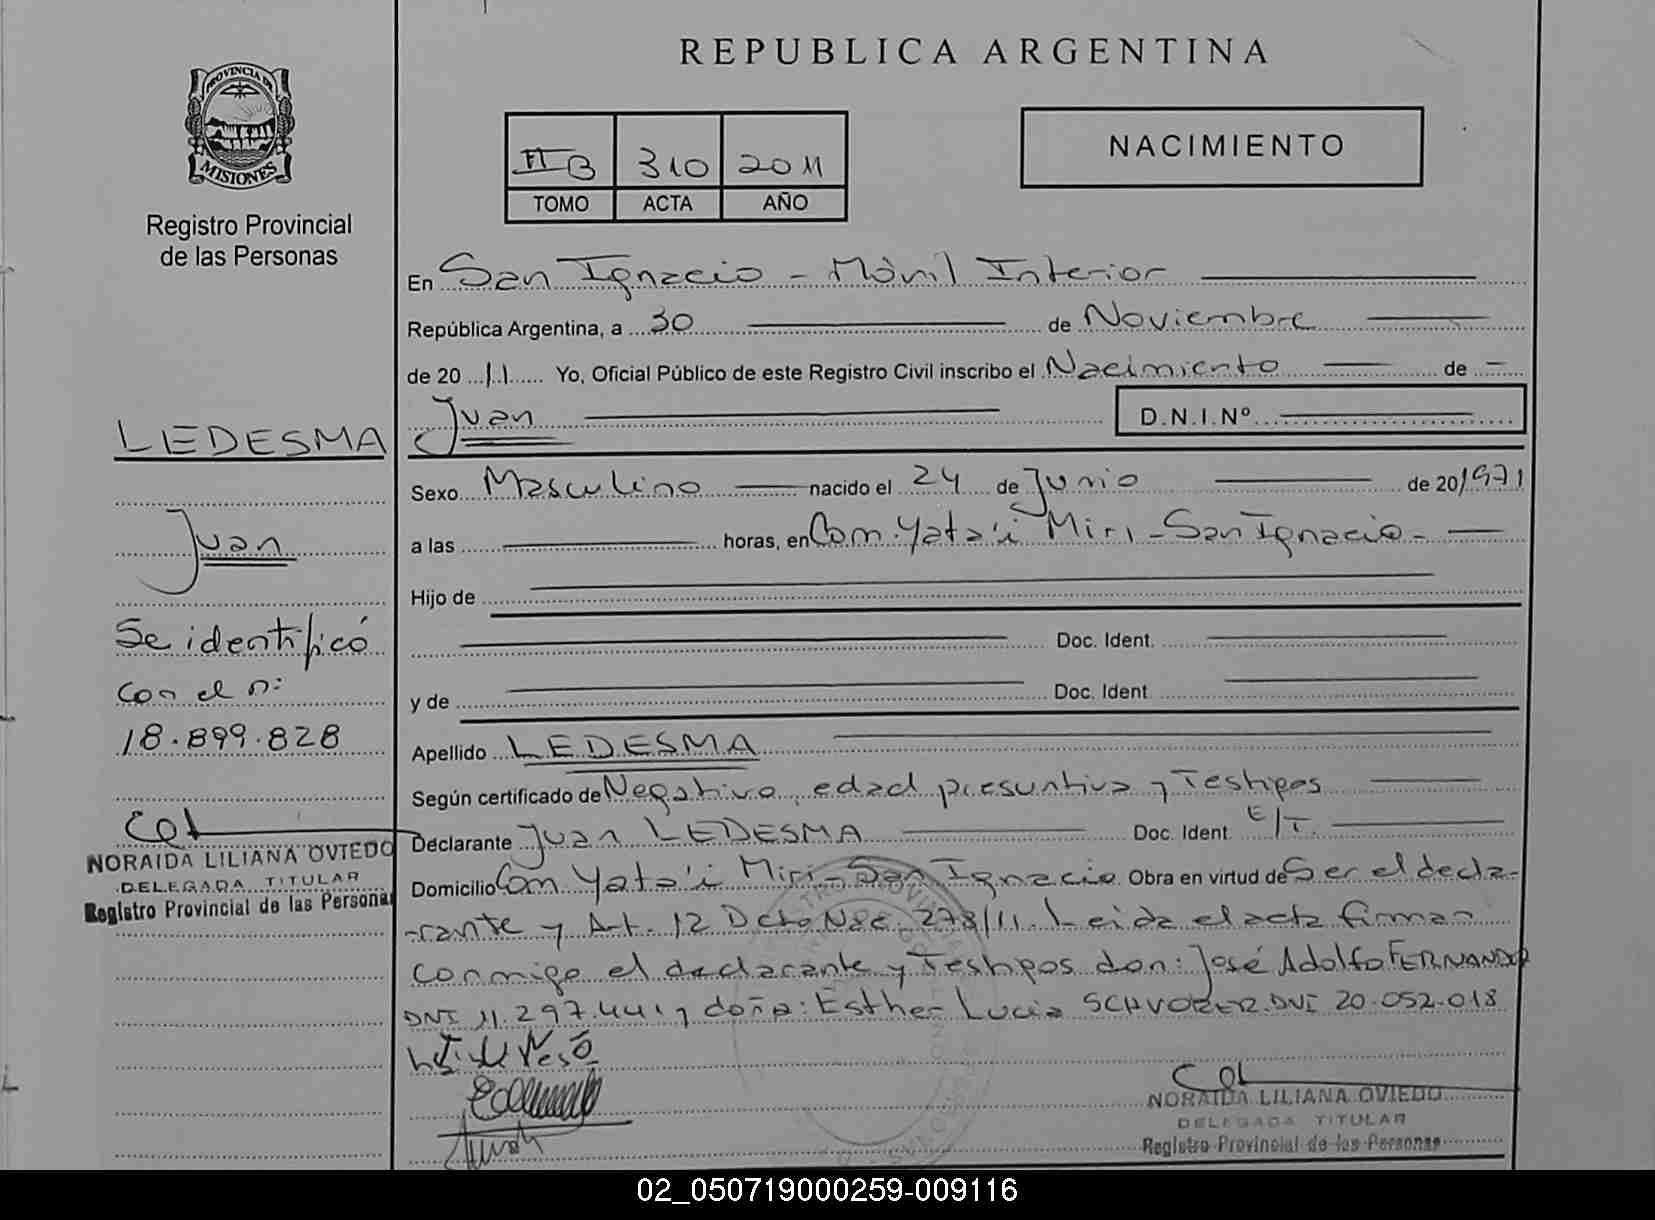 REPUBLICA ARGENTINA
PROVINCIA DE
MISIONES
Registro Provincial
de las Personas
II B 310 2011
TOMO ACTA AÑO
NACIMIENTO
En San Ignacio - Móvil Interior
República Argentina, a 30 de Noviembre
de 20 11 Yo, Oficial Público de este Registro Civil inscribo el Nacimiento de
Juan D.N.I.Nº
Sexo Masculino nacido el 24 de Junio de 20/1971
a las horas, en Com. Yata'i Miri - San Ignacio -
Hijo de
Doc. Ident.
y de Doc. Ident
Apellido LEDESMA
Según certificado de Negativo, edad presuntiva y Testigos
Declarante Juan LEDESMA Doc. Ident E/T.
Domicilio Com Yata'i Miri - San Ignacio Obra en virtud de Ser el decla-
-rante y Art. 12 Dcto Nac. 278/11. Leida el acta firman
conmigo el declarante y Testigos don: José Adolfo FERNANDEZ
DNI 11.297.441 y doña: Esther Lucia DNI 20.052.018
NORAIDA LILIANA OVIEDO
DELEGADA TITULAR
Registro Provincial de las Personas
LEDESMA
Juan
Se identificó
con el n:
18.899.828
NORAIDA LILIANA OVIEDO
DELEGADA TITULAR
Registro Provincial de las Personas
02_050719000259-009116